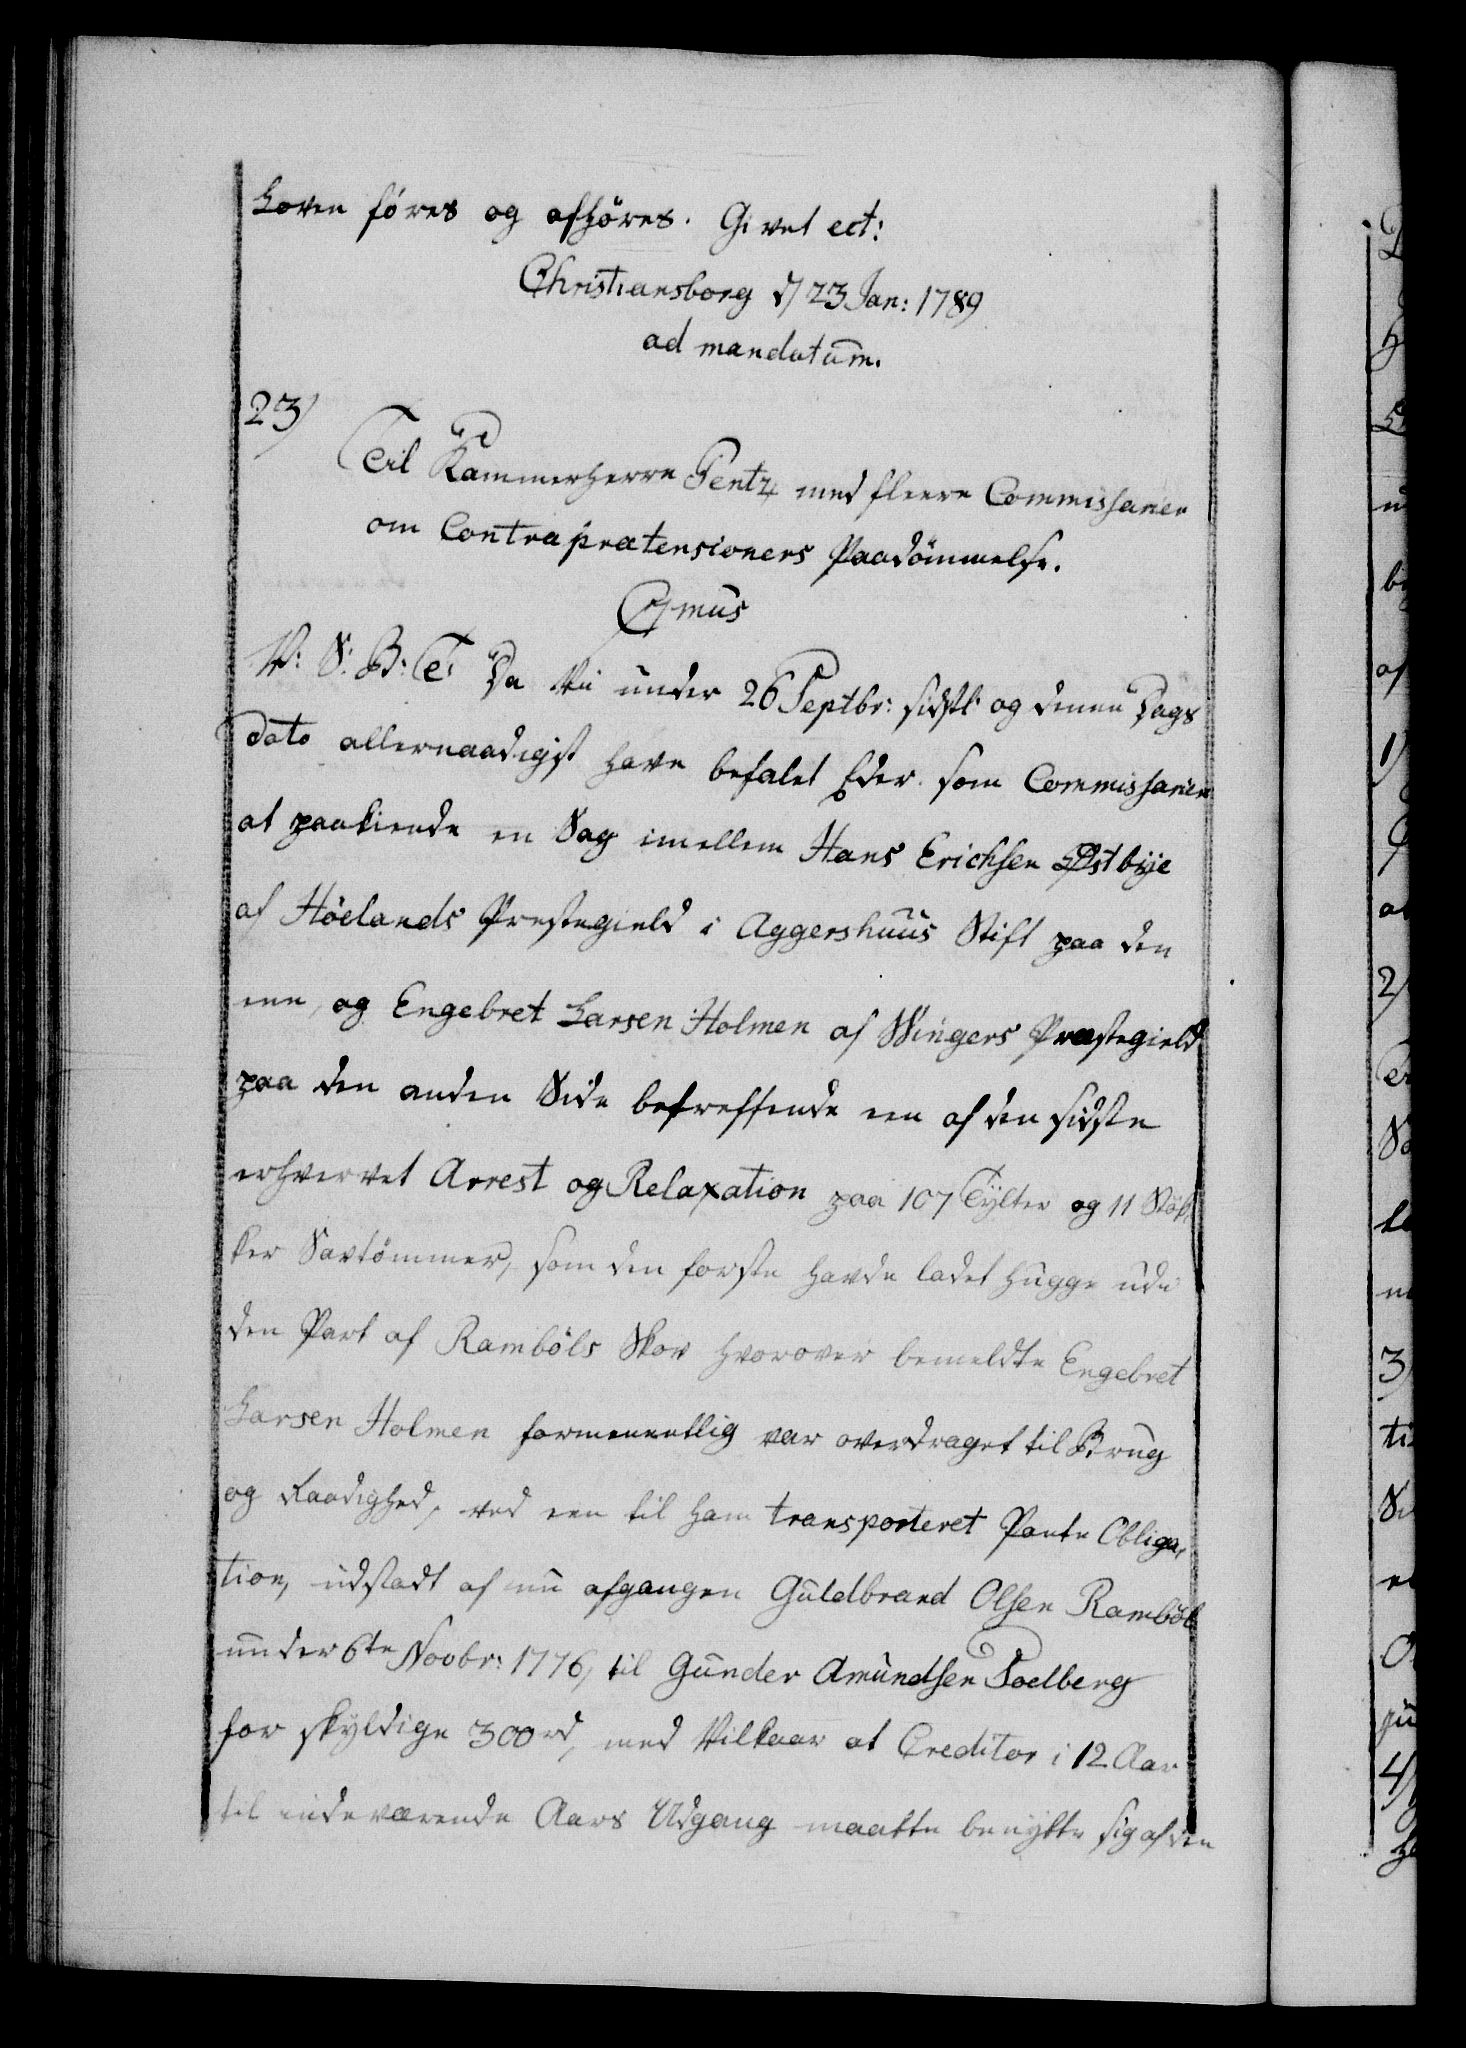 Loven føres og afhøres. Givet ect:
Christiansborg d/ 23 Jan: 1789
ad mandatum.
23)
Til Kammerherre Pentz med fleere Commissarier
om Contraprætensioners Paadömmelse.
C7mus
V: S: B: T: Da Vi under 26 Septbr: sidstl: og denne Dags
Dato allernaadigst have befalet Eder som Commissarier
at paakiende en Sag imellem Hans Erichsen Østbye
af Höelands Præstegield i Aggershuus Stift paa den
ene, og Engebret Larsen Holmen af Wingers Præstegield
paa den anden Side betreffende en af den sidste
erhvervet Arrest og Relaxation paa 107 Tylter og 11 Støk,
ker Savtömmer, som den første havde ladet hugge udi
den Part af Ramböls Skov hvorover bemeldte Engebret
Larsen Holmen formeentlig var overdraget til Brug
og Raadighed, ved een til ham transporteret Pante Obliga,
tion, udstædt af nu afgangen Guldbrand Olsen Ramböl
under 6te Novbr: 1776, til Gunder Amundsen Soelberg
for skyldige 300 rd, med Vilkaar at Creditor i 12 Aar
til indeværende Aars Udgang maatte benytte sig af den